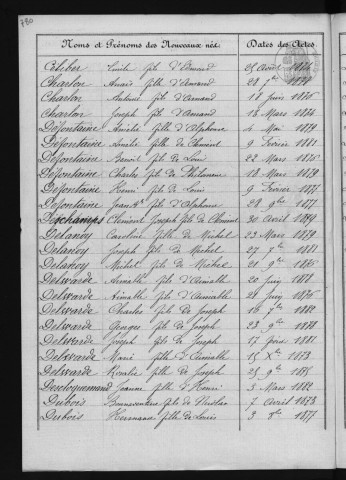 780
Noms et Prénoms des Nouveaux nés. Dates des Actes
Coliber Emile fils d'Amand 25 Avril 1874
Charlon Anaïs fille d'Amand 28 7bre 1878
Charlon Antoine fils d'Amand 18 Juin 1876
Charlon Joseph fils d'Amand 18 Mars 1874
Defontaine Amélie fille d'Alphonse 4 Mai 1879
Defontaine Aurélie fille de Clément 9 Février 1881
Defontaine Benoit fils de Louis 22 Mars 1875
Defontaine Charles fils de Philomène 18 Mars 1879
Defontaine Henri fils de Louis 9 Février 1877
Defontaine Jean Bte fils d'Alphonse 28 9bre 1877
Deschamps Clément Joseph fils de Clément 30 Avril 1879
Delanoy Caroline fille de Michel 23 Mars 1879
Delanoy Joseph fils de Michel 27 1881
Delanoy Michel fils de Michel 21 9bre 1876
Delwarde Aimable fils d'Aimable 20 Juin 1878
Delwarde Aimable fils d'Aimable 28 Juin 1876
Delwarde Charles fils de Joseph 16 7bre 1882
Delwarde Georges fils de Joseph 23 9bre 1878
Delwarde Joseph fils de Joseph 17 1881
Delwarde Marie fille d'Aimable 15 Xbre 1873
Delwarde Rosalie fille de Joseph 25 9bre 1875
Jeanne fille d'Henri 3 Mars 1882
Dubois Bonaventure fils de Nicolas 7 Avril 1873
Dubois Hermance fille de Louis 3 8bre 1877